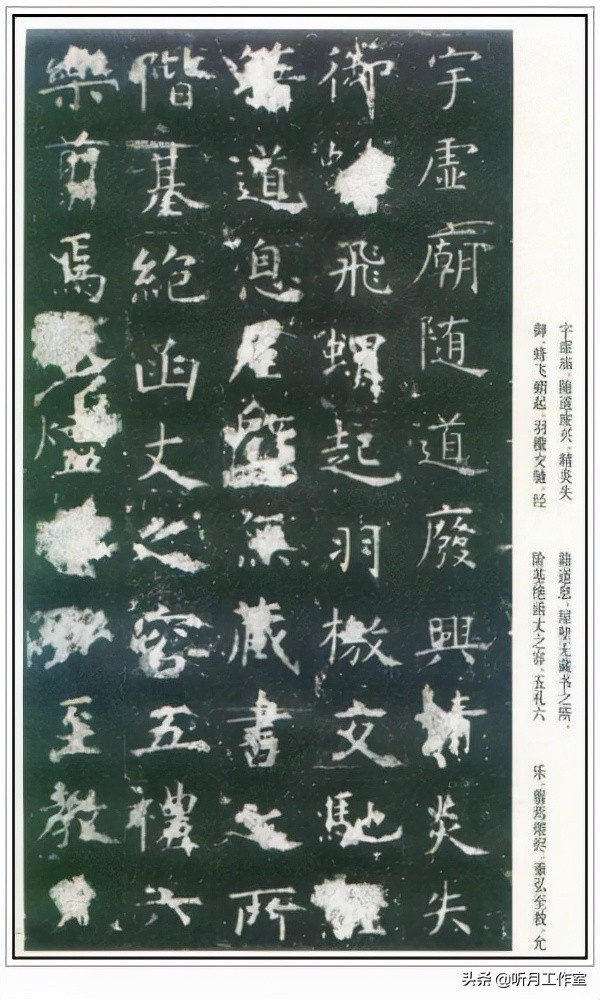 宇虛廟隨道廢興精炎失
御飛蝟起羽檄交馳
道息屋壁無藏書之所
階基絕函丈之容五禮六
樂翦焉燼至教
宇虚庙，随道废兴。精炎失
御，蜂飞蝟起，羽檄交驰，经
籍道息，屋壁无藏书之所，
阶基绝函丈之容，五礼六
乐，翦焉煨烬。重弘至教，允
头条 @听月工作室